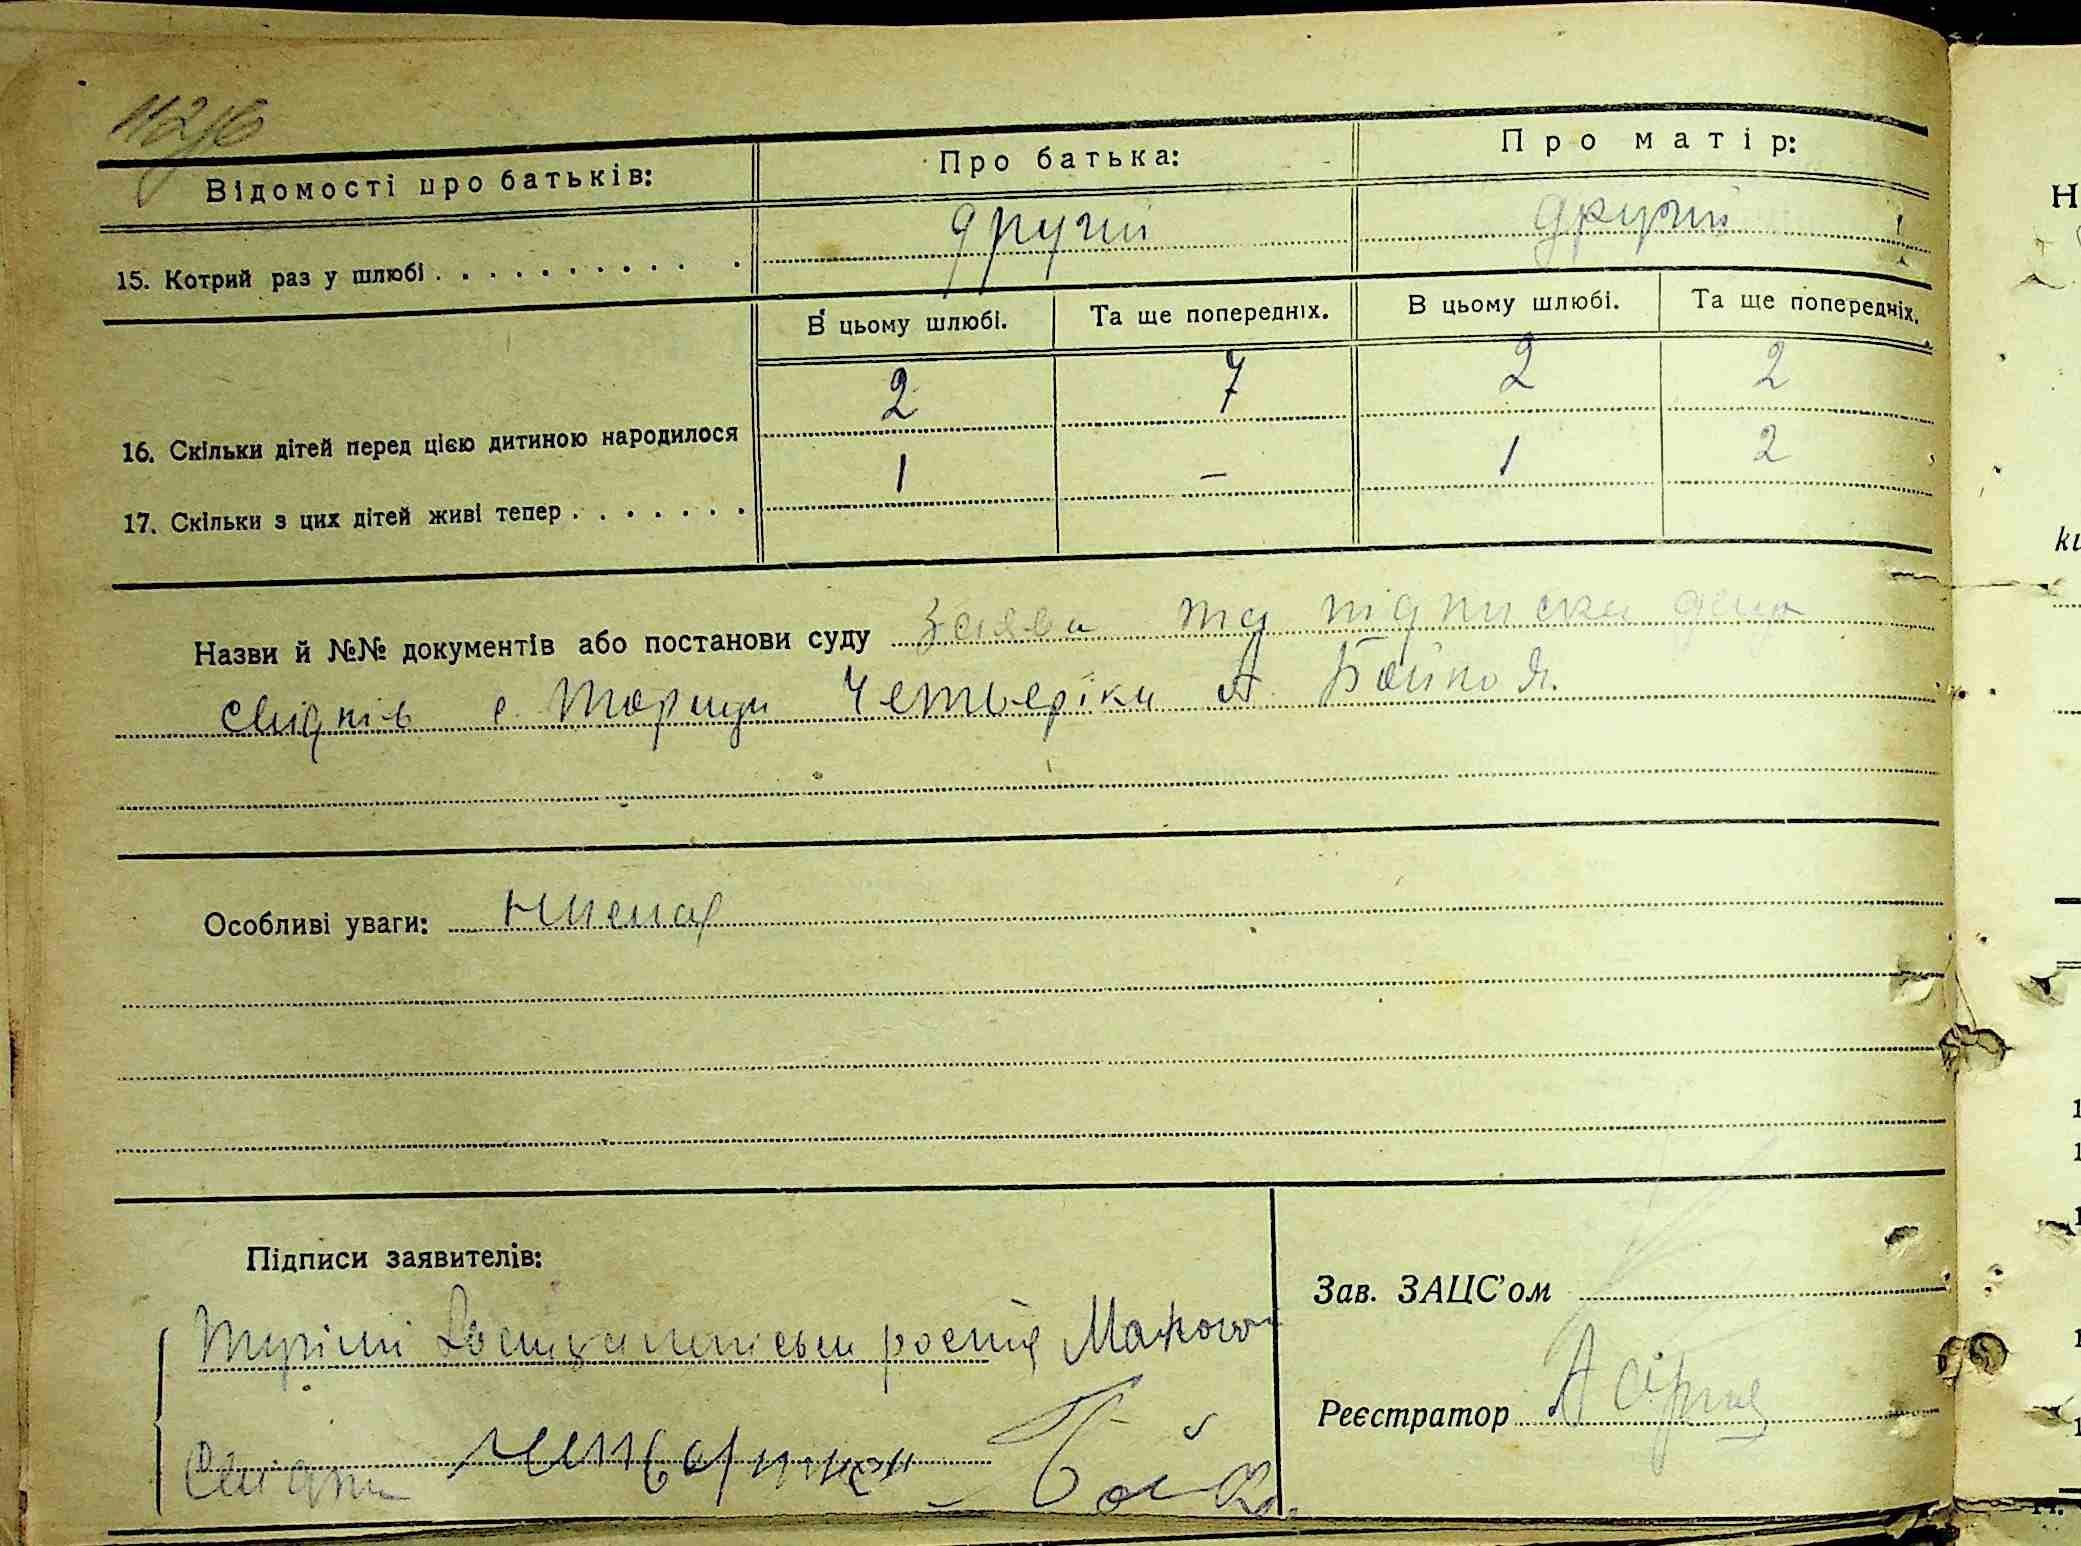 Відомості про батьків:
Про батька:
Про матір:
15. Котрий раз у шлюбі
другий
другий
В цьому шлюбі.
Та ще попередніх.
В цьому шлюбі.
Та ще попередніх.
16. Скільки дітей перед цією дитиною народилося
2
7
2
2
17. Скільки з цих дітей живі тепер
1
–
1
2
Назви й №№ документів або постанови суду заява та підписка двох
свідків с. Ториця Четверіка А. Бойко Я.
Особливі уваги: немає
Підписи заявителів:
Зав. ЗАЦС'ом
Свідки Бойко
Реєстратор
Н